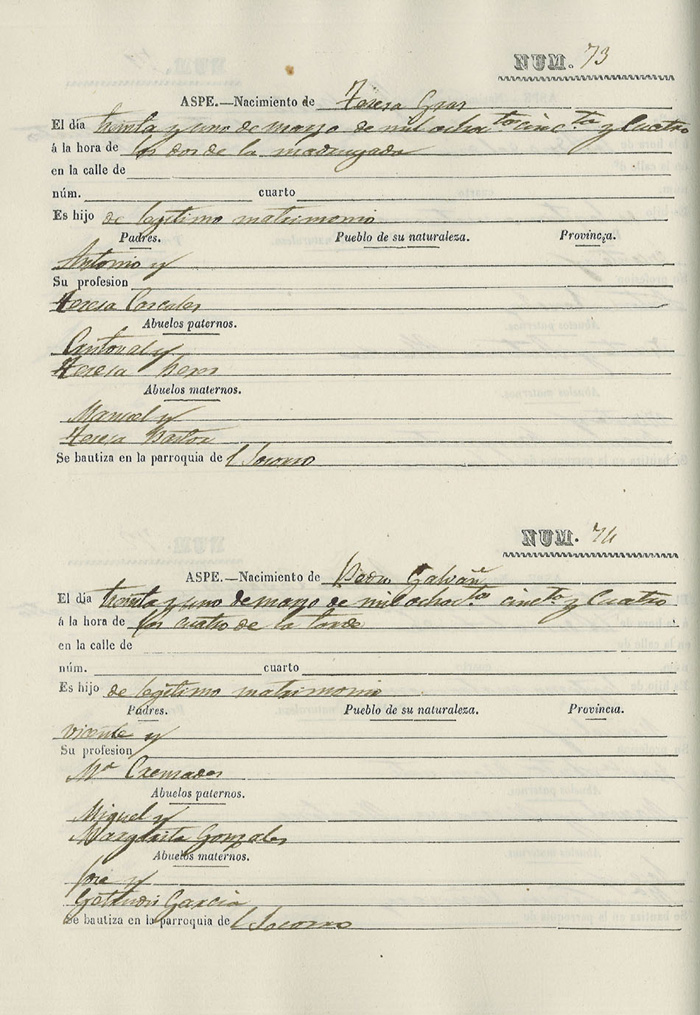 NUM. 73
ASPE.—Nacimiento de Teresa Gras
El día treinta y uno de marzo de mil ochotos cincta y Cuatro
á la hora de las dos de la madrugada
en la calle de
núm. cuarto
Es hijo de legitimo matrimonio
Padres. Pueblo de su naturaleza. Provincia.
Antonio y
Su profesion
Teresa Cascales
Abuelos paternos.
Cristoval y
Teresa
Abuelos maternos.
Manuel y
Teresa Pastor
Se bautiza en la parroquia de l Socorro
NUM. 74
ASPE.—Nacimiento de Pedro Galvañ
El dia treinta y uno de marzo de mil ochocta cincta y Cuatro
á la hora de las cuatro de la tarde
en la calle de
núm. cuarto
Es hijo de legitimo matrimonio
Padres. Pueblo de su naturaleza. Provincia.
Vicente y
Su profesion
Ma Cremades
Abuelos paternos.
Miguel y
Margarita Gonzales
Abuelos maternos.
Jose y
Garcia
Se bautiza en la parroquia de l Socorro